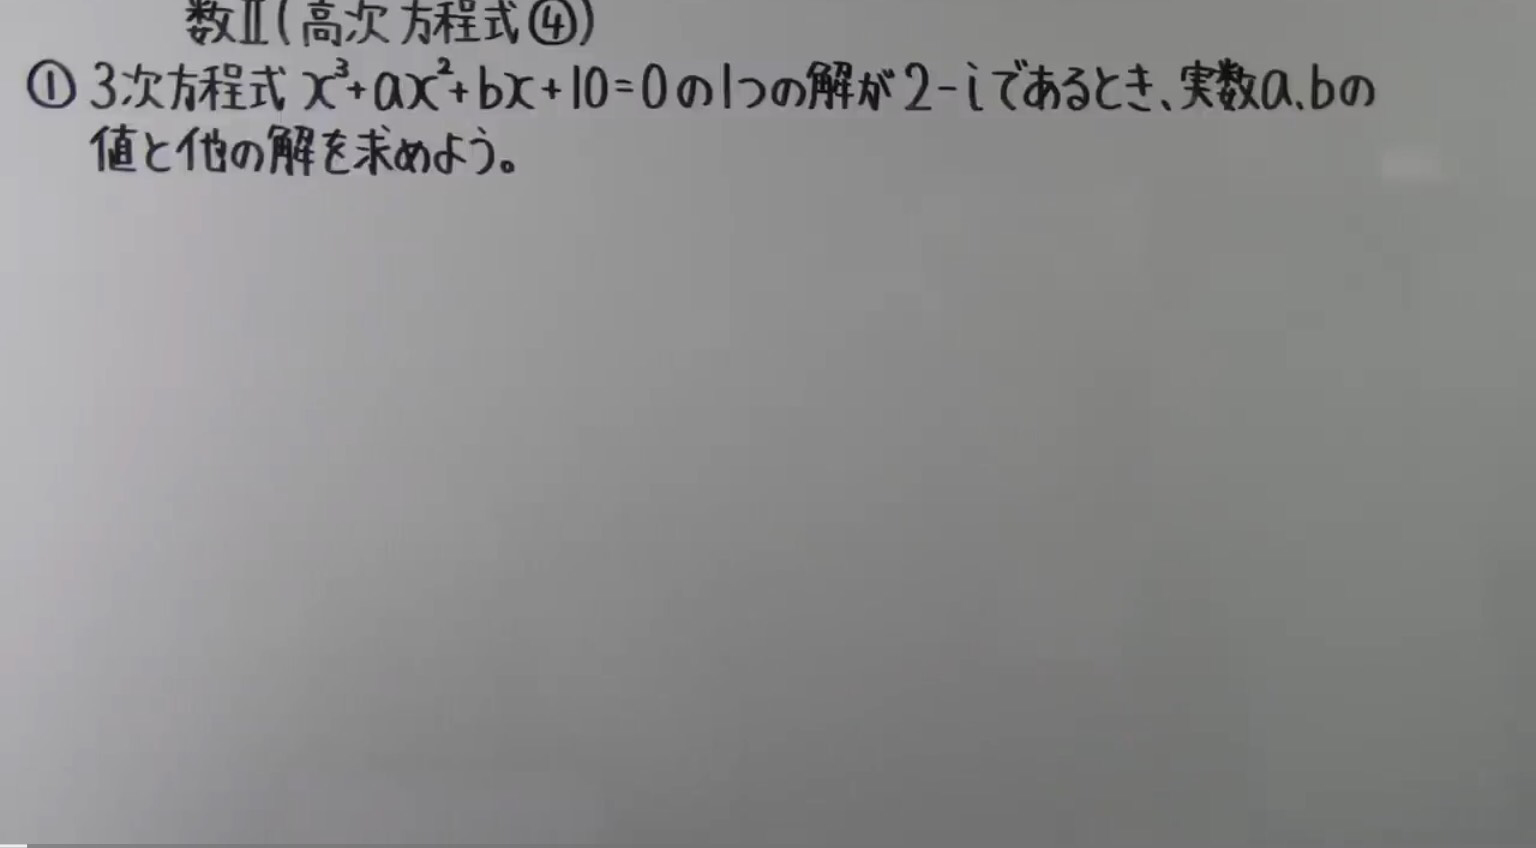 数Ⅱ(高次方程式④)
① 3次方程式 x³+ax²+bx+10=0の1つの解が2-iであるとき、実数a、bの
値と他の解を求めよう。